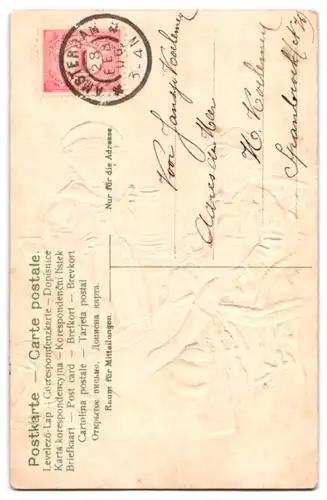 Postkarte — Carte postale.
Levelező-Lap — Correspondenzkarte — Dopisnice
Karta korespondencyjna — Korespondenční listek
Briefkaart — Post card — Brefkort — Brevkort
Cartolina postale — Tarjeta postal
Открытое письмо. Дописена карта.
Raum für Mitteilungen.
Nur für die Adresse.
AMSTERDAM
28
FEB
3-4 N
Voor Jansje Koeleme
Adres den Heer
H. Koeleme
Spanbroek